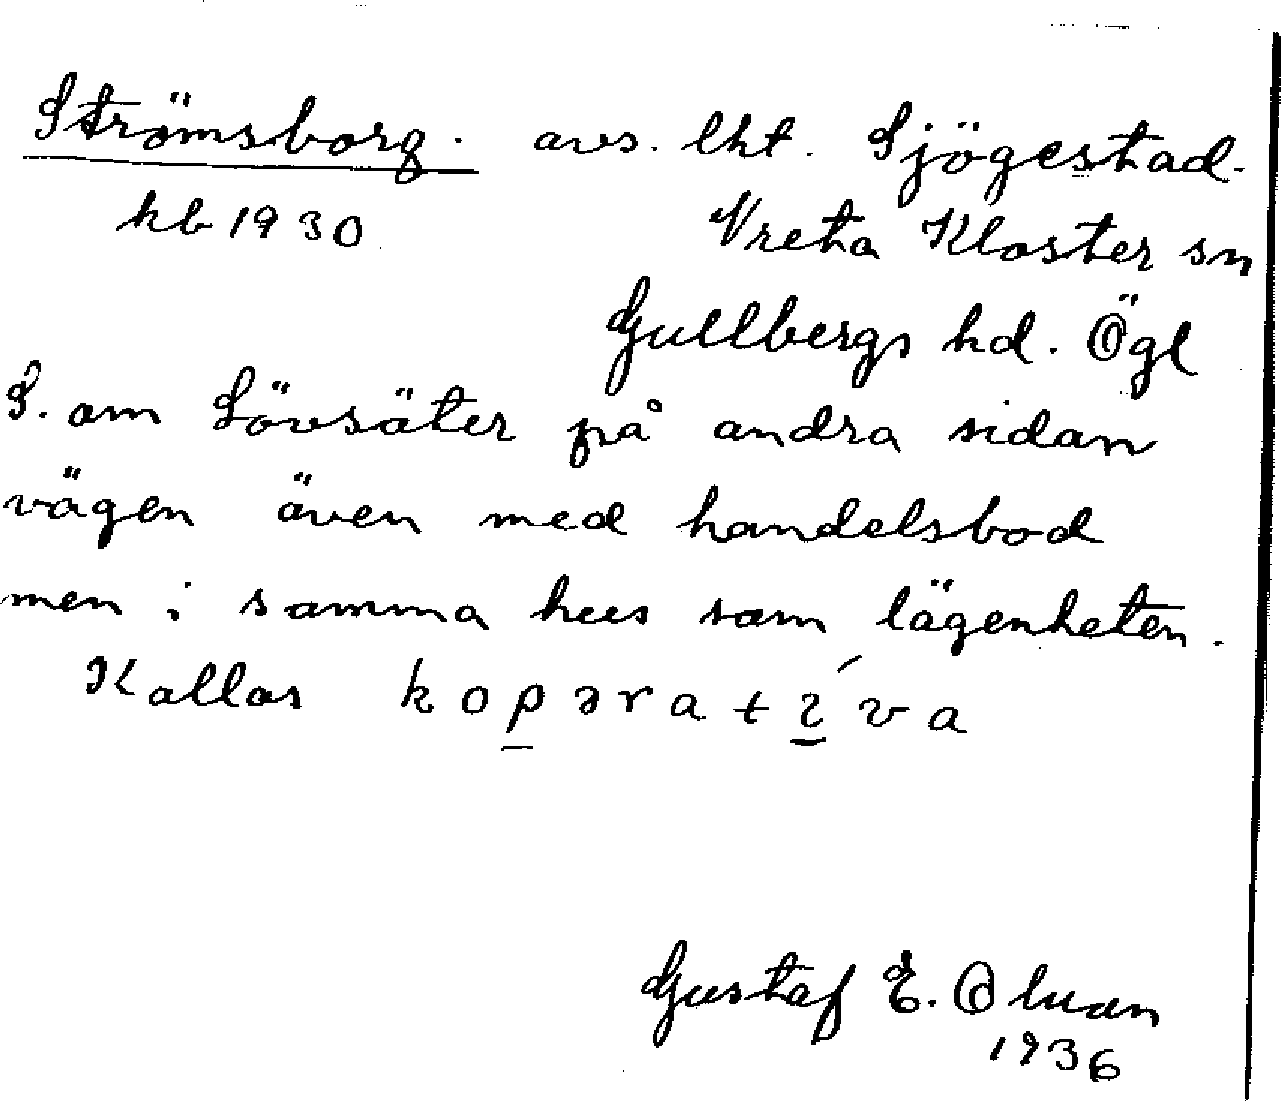 Strömsborg. avs. lht. Sjögestad.
kb 1930 Vreta Kloster sn
Gullbergs hd. Ögl
S. om Lövsäter på andra sidan
vägen även med handelsbod
men i samma hus som lägenheten.
Kallas kopərati´va
Gustaf E. Olsson
1936